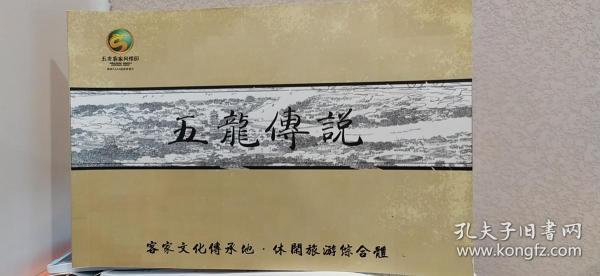 五龙客家风情园
五龍傳説
客家文化傳承地·休閑旅游综合體
孔夫子旧书网
www.kongfz.com